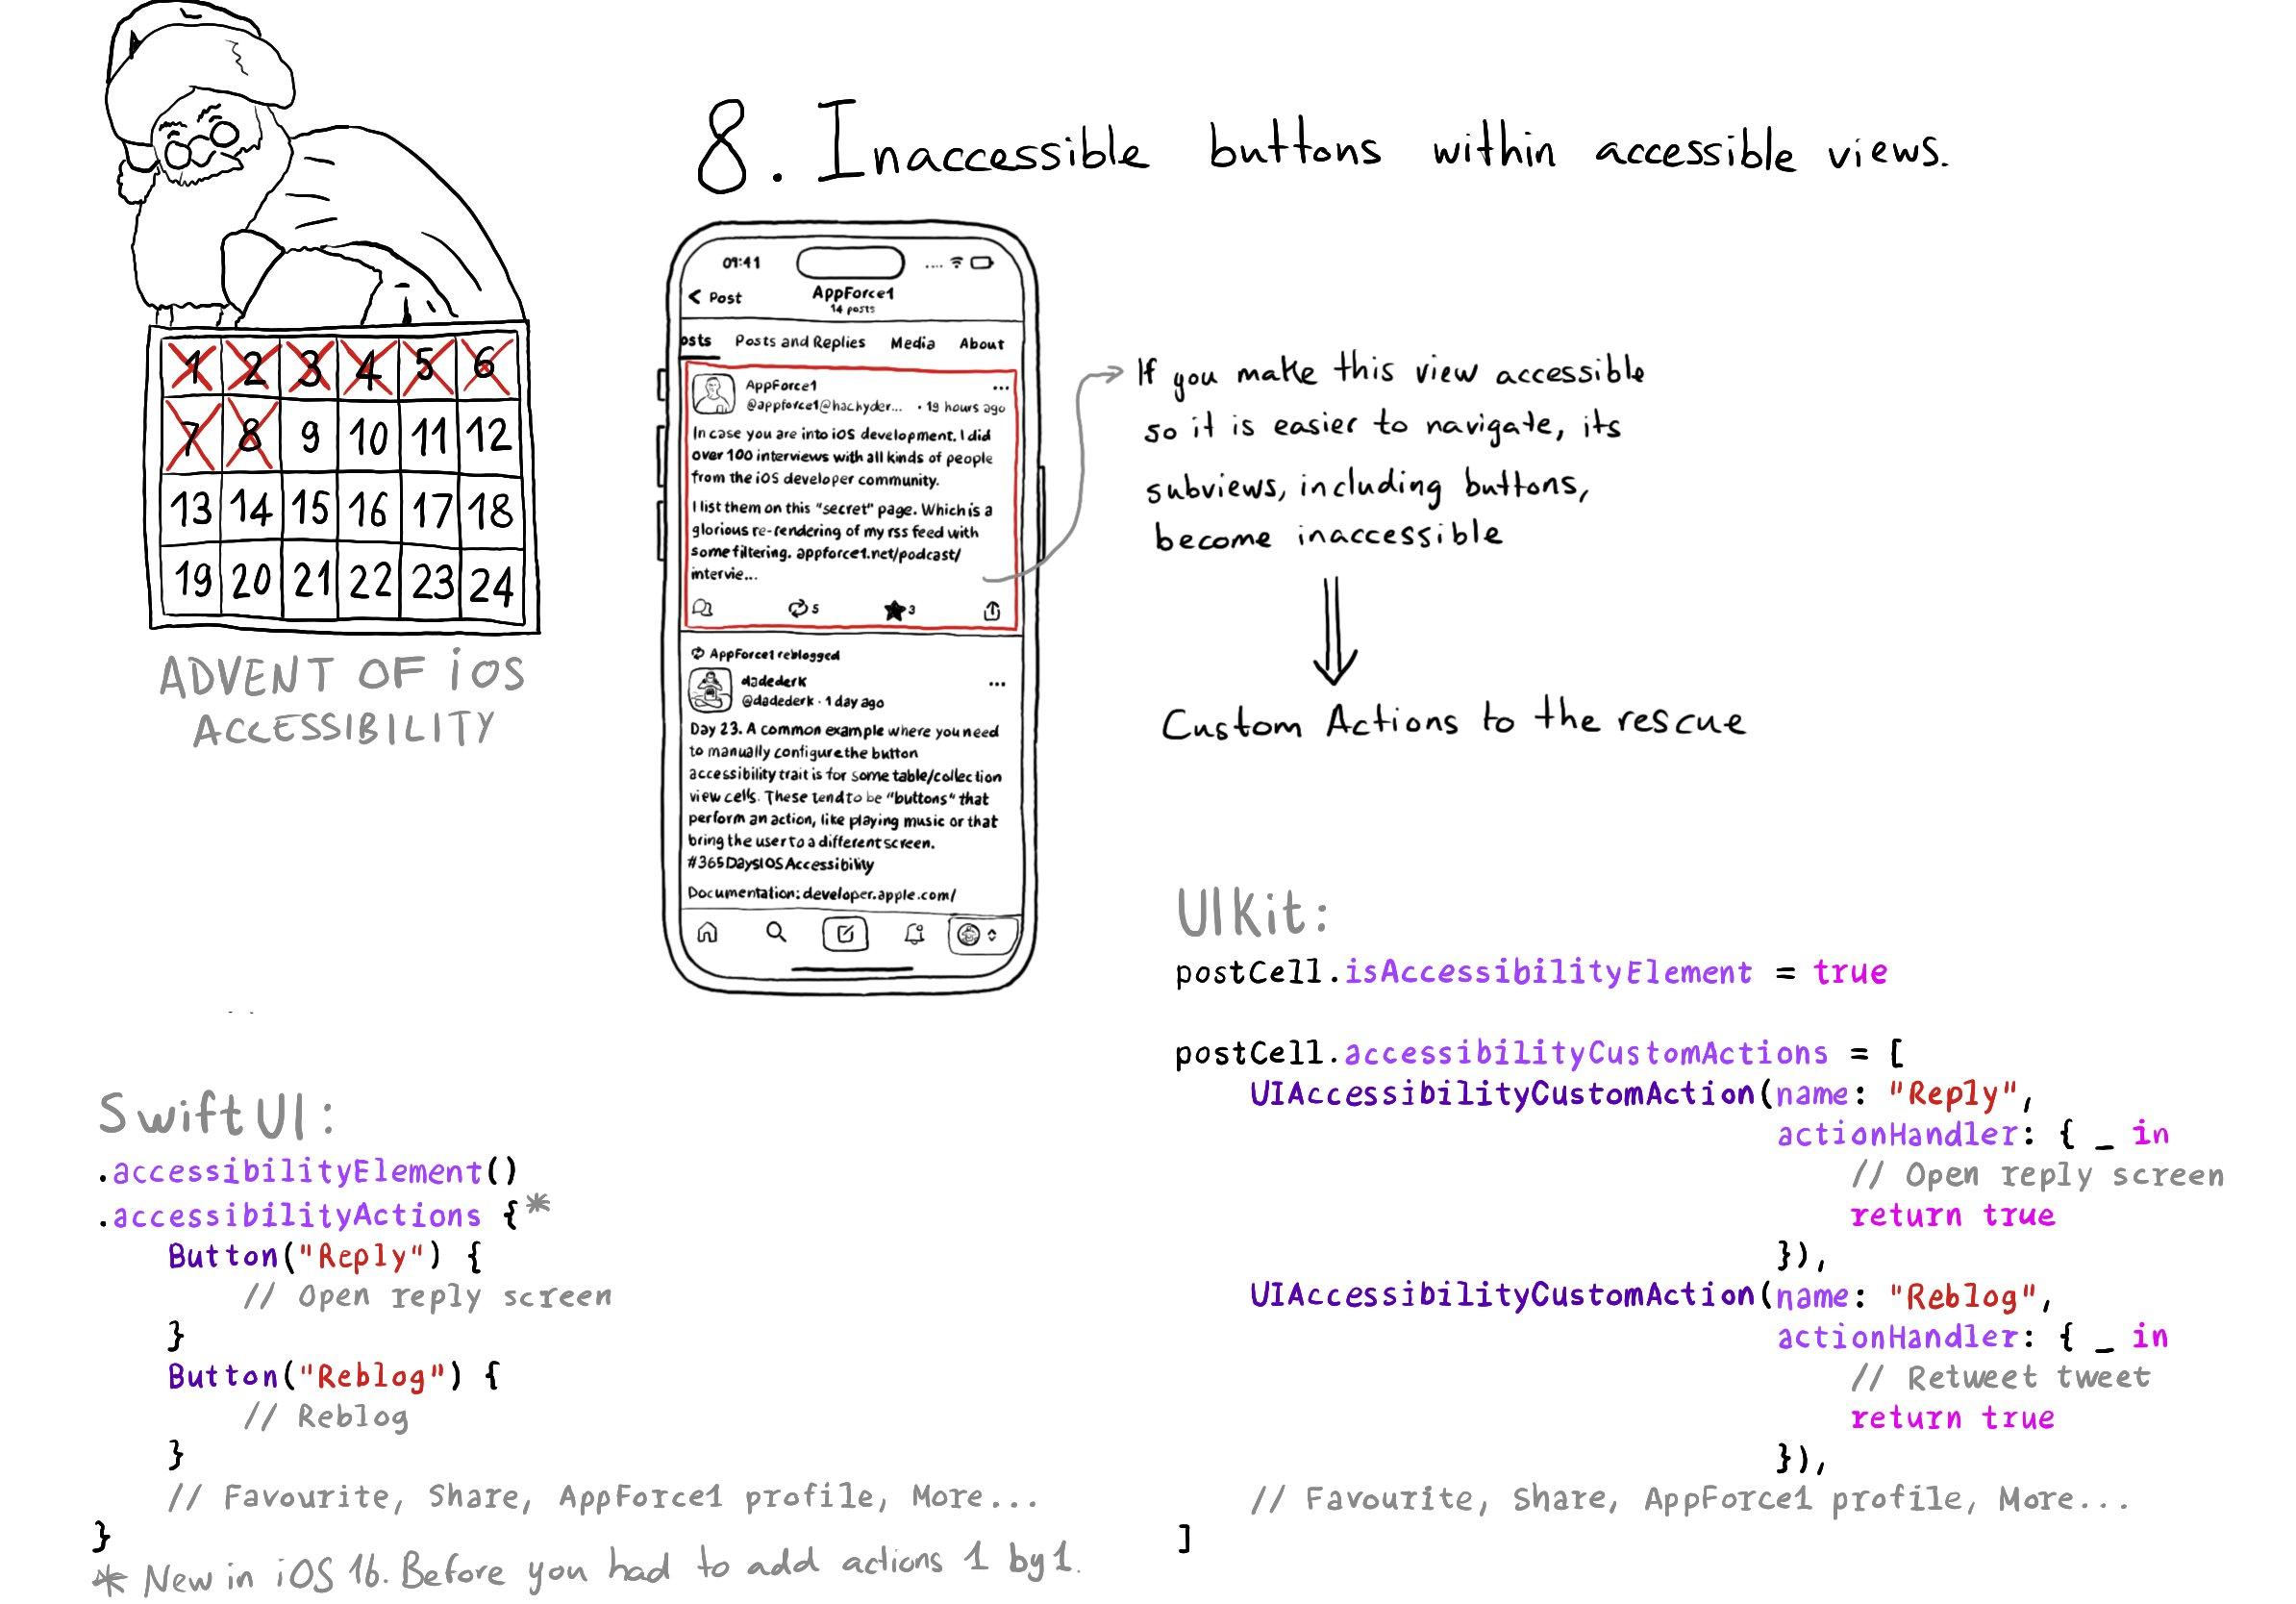 8. Inaccessible buttons within accessible views.
1 2 3 4 5 6
7 8 9 10 11 12
13 14 15 16 17 18
19 20 21 22 23 24
ADVENT OF iOS
ACCESSIBILITY
09:41
< Post
AppForce1
14 posts
osts Posts and Replies Media About
AppForce1 ...
@appforce1@hachyder... · 19 hours ago
In case you are into iOS development. I did
over 100 interviews with all kinds of people
from the iOS developer community.
I list them on this "secret" page. Which is a
glorious re-rendering of my rss feed with
some filtering. appforce1.net/podcast/
intervie...
5 3
AppForce1 reblogged
dadederk ...
@dadederk · 1 day ago
Day 23. A common example where you need
to manually configure the button
accessibility trait is for some table/collection
view cells. These tend to be "buttons" that
perform an action, like playing music or that
bring the user to a different screen.
#365DaysIOSAccessibility
Documentation: developer.apple.com/
If you make this view accessible
so it is easier to navigate, its
subviews, including buttons,
become inaccessible
Custom Actions to the rescue
SwiftUI:
.accessibilityElement()
.accessibilityActions {*
Button("Reply") {
// Open reply screen
}
Button("Reblog") {
// Reblog
}
// Favourite, Share, AppForce1 profile, More...
}
* New in iOS 16. Before you had to add actions 1 by 1.
UIKit:
postCell.isAccessibilityElement = true
postCell.accessibilityCustomActions = [
UIAccessibilityCustomAction(name: "Reply",
actionHandler: { _ in
// Open reply screen
return true
}),
UIAccessibilityCustomAction(name: "Reblog",
actionHandler: { _ in
// Retweet tweet
return true
}),
// Favourite, Share, AppForce1 profile, More...
]